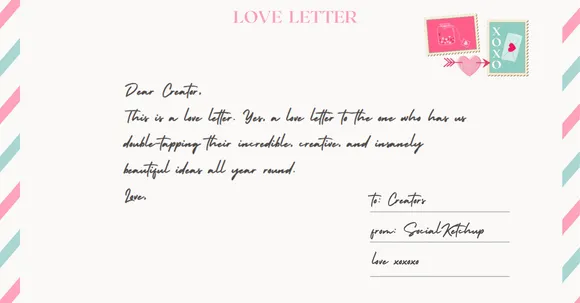 LOVE LETTER
XOXO
Dear Creator,
This is a love letter. Yes, a love letter to the one who has us
double-tapping their incredible, creative, and insanely
beautiful ideas all year round.
Love,
to: Creators
from: SocialKetchup
love xoxoxo